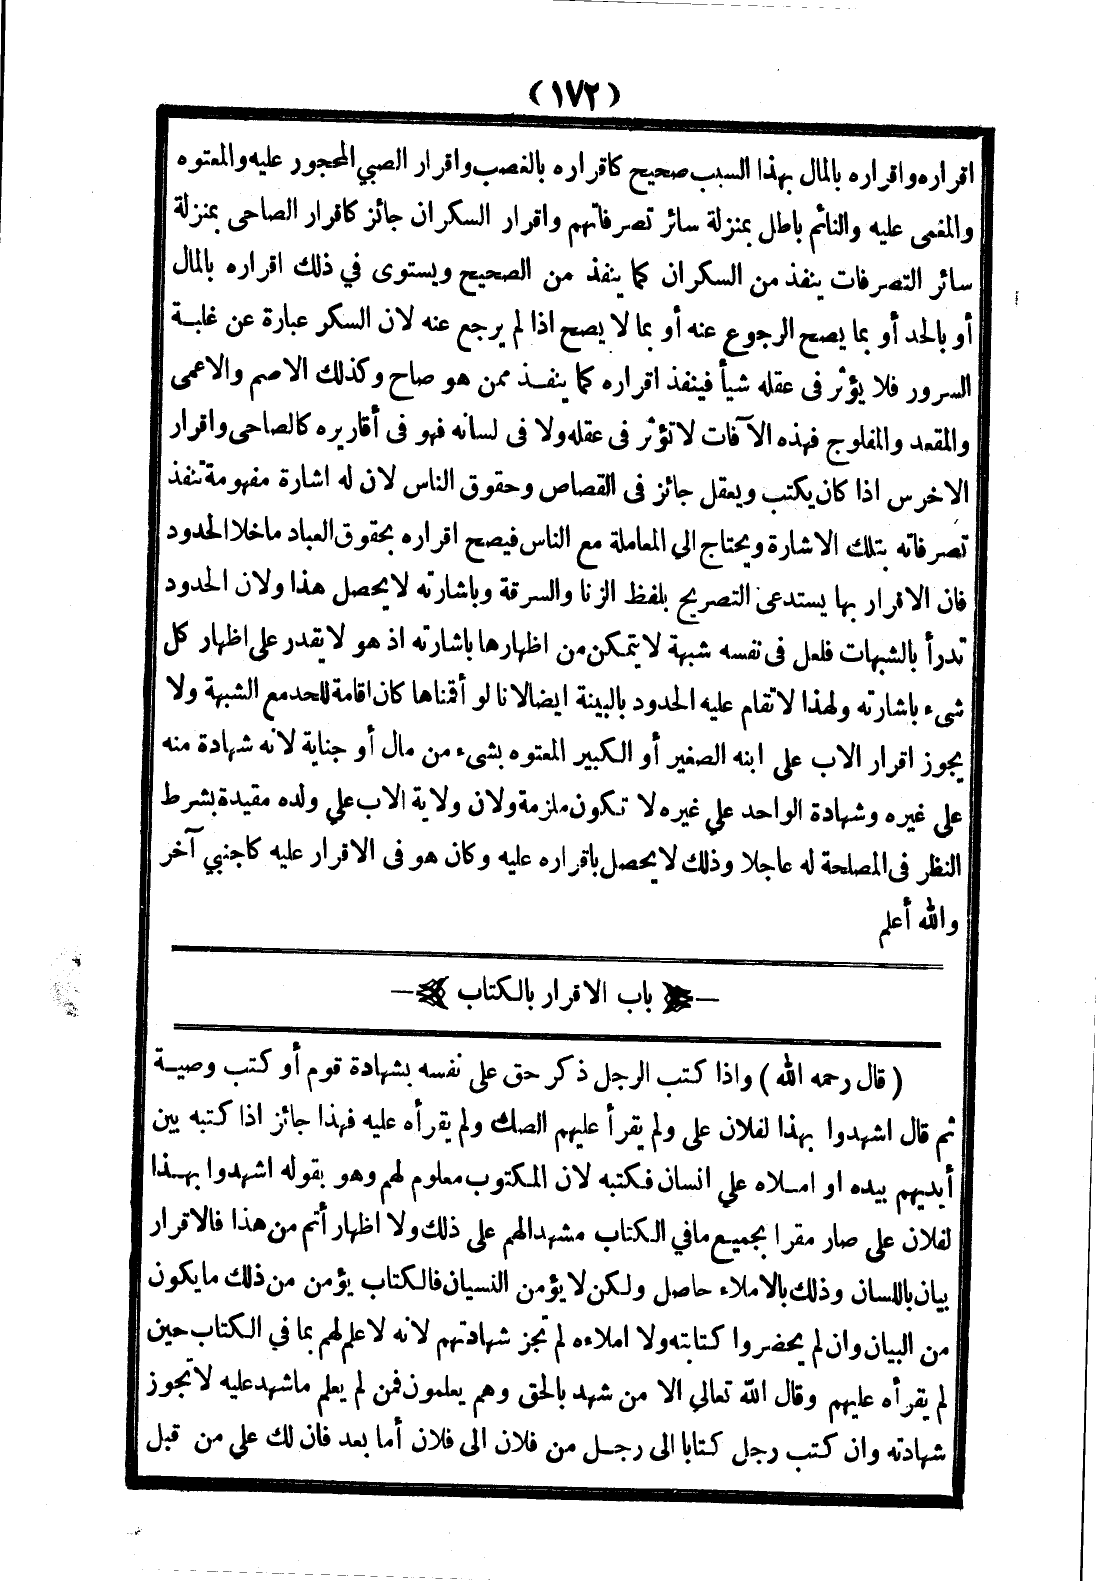 (١٧٢)
اقراره واقراره بالمال بهذا السبب صحيح كاقراره بالغصب واقرار الصبي المحجور عليه والمعتوه
والمغمى عليه والنائم باطل بمنزلة سائر تصرفاتهم واقرار السكران جائز كاقرار الصاحى بمنزلة
سائر التصرفات ينفذ من السكران كما ينفذ من الصحيح ويستوى في ذلك اقراره بالمال
أو بالحد أو بما يصح الرجوع عنه أو بما لا يصح اذا لم يرجع عنه لان السكر عبارة عن غلبة
السرور فلا يؤثر فى عقله شيأ فينفذ اقراره كما ينفذ ممن هو صاح وكذلك الاصم والاعمى
والمقعد والمفلوج فهذه الآفات لا تؤثر فى عقله ولا فى لسانه فهو فى أقاريره كالصاحى واقرار
الاخرس اذا كان يكتب ويعقل جائز فى القصاص وحقوق الناس لان له اشارة مفهومة تنفذ
تصرفاته بتلك الاشارة ويحتاج الى المعاملة مع الناس فيصح اقراره بحقوق العباد ما خلا الحدود
فان الاقرار بها يستدعى التصريح بلفظ الزنا والسرقة وباشارته لا يحصل هذا ولان الحدود
تدرأ بالشبهات فلعل فى نفسه شبهة لا يتمكن من اظهارها باشارته اذ هو لا يقدر على اظهار كل
شىء باشارته ولهذا لا تقام عليه الحدود بالبينة ايضا لانا لو أقمناها كان اقامة للحد مع الشبهة ولا
يجوز اقرار الاب على ابنه الصغير أو الكبير المعتوه بشىء من مال أو جناية لانه شهادة منه
على غيره وشهادة الواحد علي غيره لا تكون ملزمة ولان ولاية الاب علي ولده مقيدة بشرط
النظر فى المصلحة له عاجلا وذلك لا يحصل باقراره عليه وكان هو فى الاقرار عليه كاجنبي آخر
والله أعلم
باب الاقرار بالكتاب
( قال رحمه الله ) واذا كتب الرجل ذكر حق على نفسه بشهادة قوم أو كتب وصية
ثم قال اشهدوا بهذا لفلان على ولم يقرأ عليهم الصك ولم يقرأه عليه فهذا جائز اذا كتبه بين
أيديهم بيده او املاه علي انسان فكتبه لان المكتوب معلوم لهم وهو بقوله اشهدوا بهذا
لفلان على صار مقرا بجميع ما في الكتاب مشهدا لهم على ذلك ولا اظهار أتم من هذا فالاقرار
بيان باللسان وذلك بالاملاء حاصل ولكن لا يؤمن النسيان فالكتاب يؤمن من ذلك ما يكون
من البيان وان لم يحضروا كتابته ولا املاءه لم تجز شهادتهم لانه لا علم لهم بما في الكتاب حين
لم يقرأه عليهم وقال الله تعالي الا من شهد بالحق وهم يعلمون فمن لم يعلم ما شهد عليه لا تجوز
شهادته وان كتب رجل كتابا الى رجل من فلان الى فلان أما بعد فان لك علي من قبل